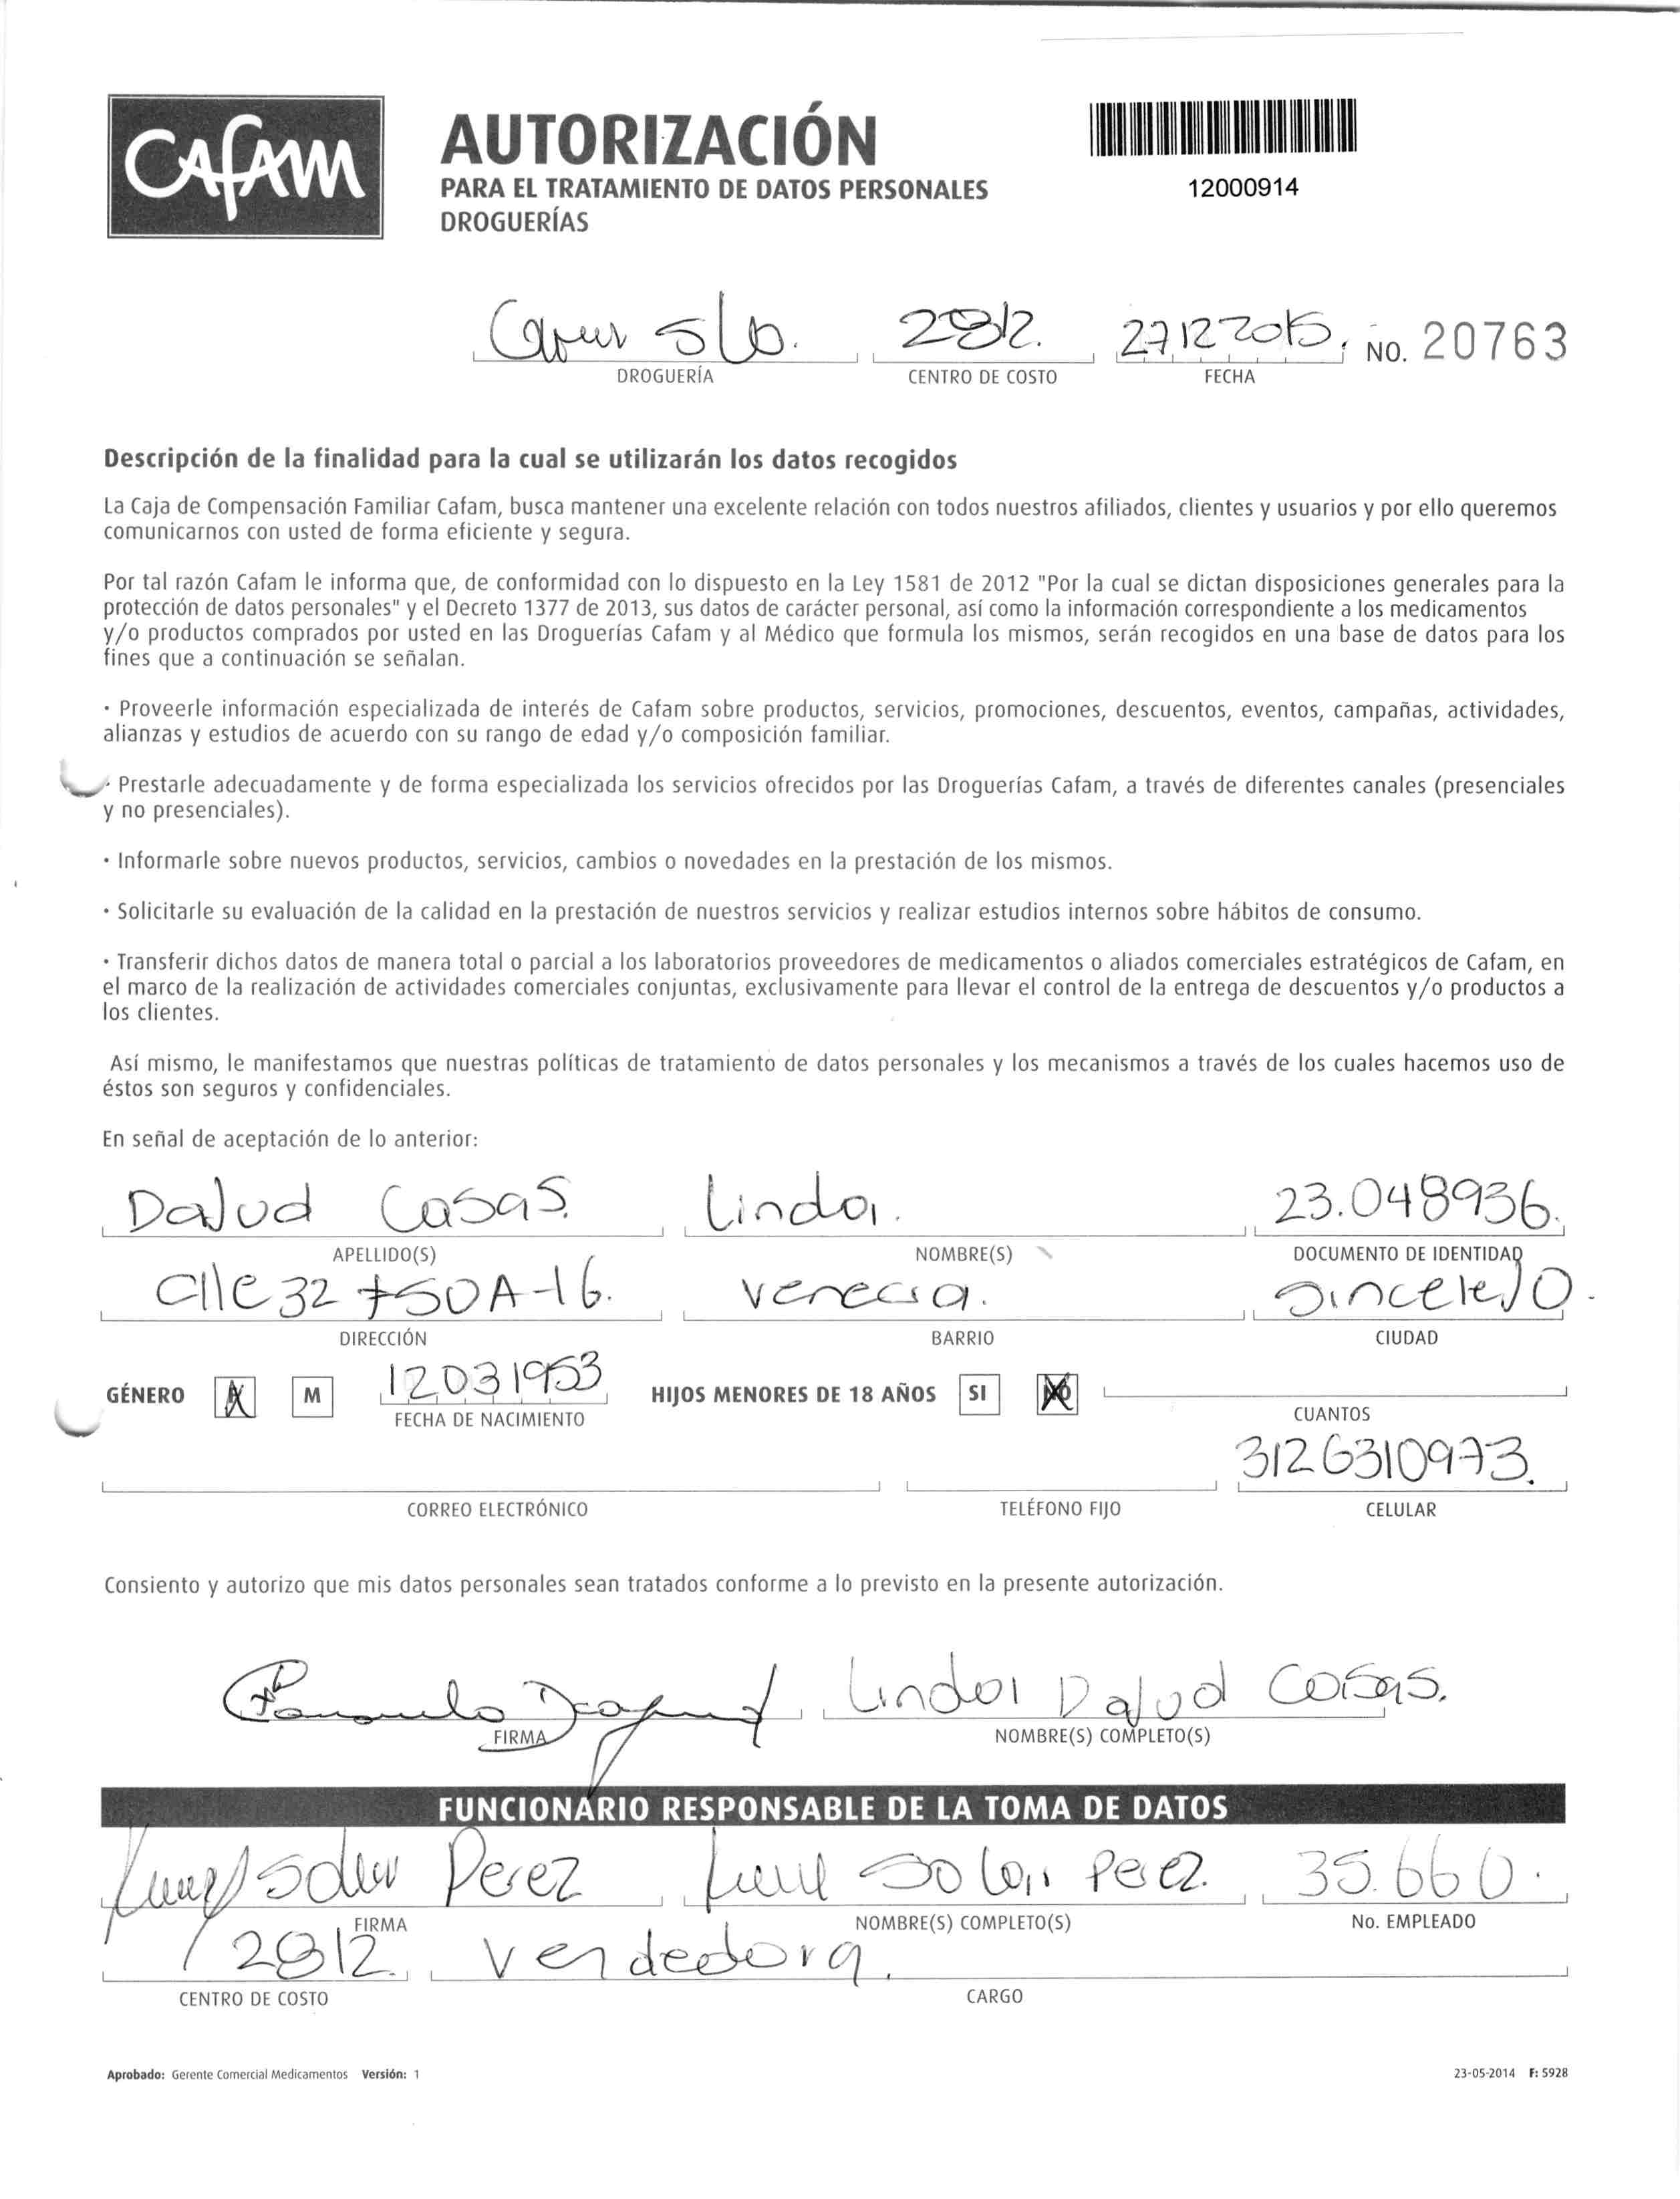 CAFAM
AUTORIZACIÓN
PARA EL TRATAMIENTO DE DATOS PERSONALES
DROGUERÍAS
12000914
2812. 27122015. No. 20763
DROGUERÍA CENTRO DE COSTO FECHA
Descripción de la finalidad para la cual se utilizarán los datos recogidos
La Caja de Compensación Familiar Cafam, busca mantener una excelente relación con todos nuestros afiliados, clientes y usuarios y por ello queremos
comunicarnos con usted de forma eficiente y segura.
Por tal razón Cafam le informa que, de conformidad con lo dispuesto en la Ley 1581 de 2012 "Por la cual se dictan disposiciones generales para la
protección de datos personales" y el Decreto 1377 de 2013, sus datos de carácter personal, así como la información correspondiente a los medicamentos
y/o productos comprados por usted en las Droguerías Cafam y al Médico que formula los mismos, serán recogidos en una base de datos para los
fines que a continuación se señalan.
· Proveerle información especializada de interés de Cafam sobre productos, servicios, promociones, descuentos, eventos, campañas, actividades,
alianzas y estudios de acuerdo con su rango de edad y/o composición familiar.
· Prestarle adecuadamente y de forma especializada los servicios ofrecidos por las Droguerías Cafam, a través de diferentes canales (presenciales
y no presenciales).
· Informarle sobre nuevos productos, servicios, cambios o novedades en la prestación de los mismos.
· Solicitarle su evaluación de la calidad en la prestación de nuestros servicios y realizar estudios internos sobre hábitos de consumo.
· Transferir dichos datos de manera total o parcial a los laboratorios proveedores de medicamentos o aliados comerciales estratégicos de Cafam, en
el marco de la realización de actividades comerciales conjuntas, exclusivamente para llevar el control de la entrega de descuentos y/o productos a
los clientes.
Así mismo, le manifestamos que nuestras políticas de tratamiento de datos personales y los mecanismos a través de los cuales hacemos uso de
éstos son seguros y confidenciales.
En señal de aceptación de lo anterior:
Dajud Casas. Linda. 23.048936.
APELLIDO(S) NOMBRE(S) DOCUMENTO DE IDENTIDAD
Clle 32 #50A-16. venecia. sincelejo.
DIRECCIÓN BARRIO CIUDAD
GÉNERO M 12031953 HIJOS MENORES DE 18 AÑOS SI NO
FECHA DE NACIMIENTO CUANTOS
3126310973.
CORREO ELECTRÓNICO TELÉFONO FIJO CELULAR
Consiento y autorizo que mis datos personales sean tratados conforme a lo previsto en la presente autorización.
Linda Dajud Casas.
FIRMA NOMBRE(S) COMPLETO(S)
FUNCIONARIO RESPONSABLE DE LA TOMA DE DATOS
Perez Perez. 35.660.
FIRMA NOMBRE(S) COMPLETO(S) No. EMPLEADO
2812. vendedora.
CENTRO DE COSTO CARGO
Aprobado: Gerente Comercial Medicamentos Versión: 1 23-05-2014 F: 5928